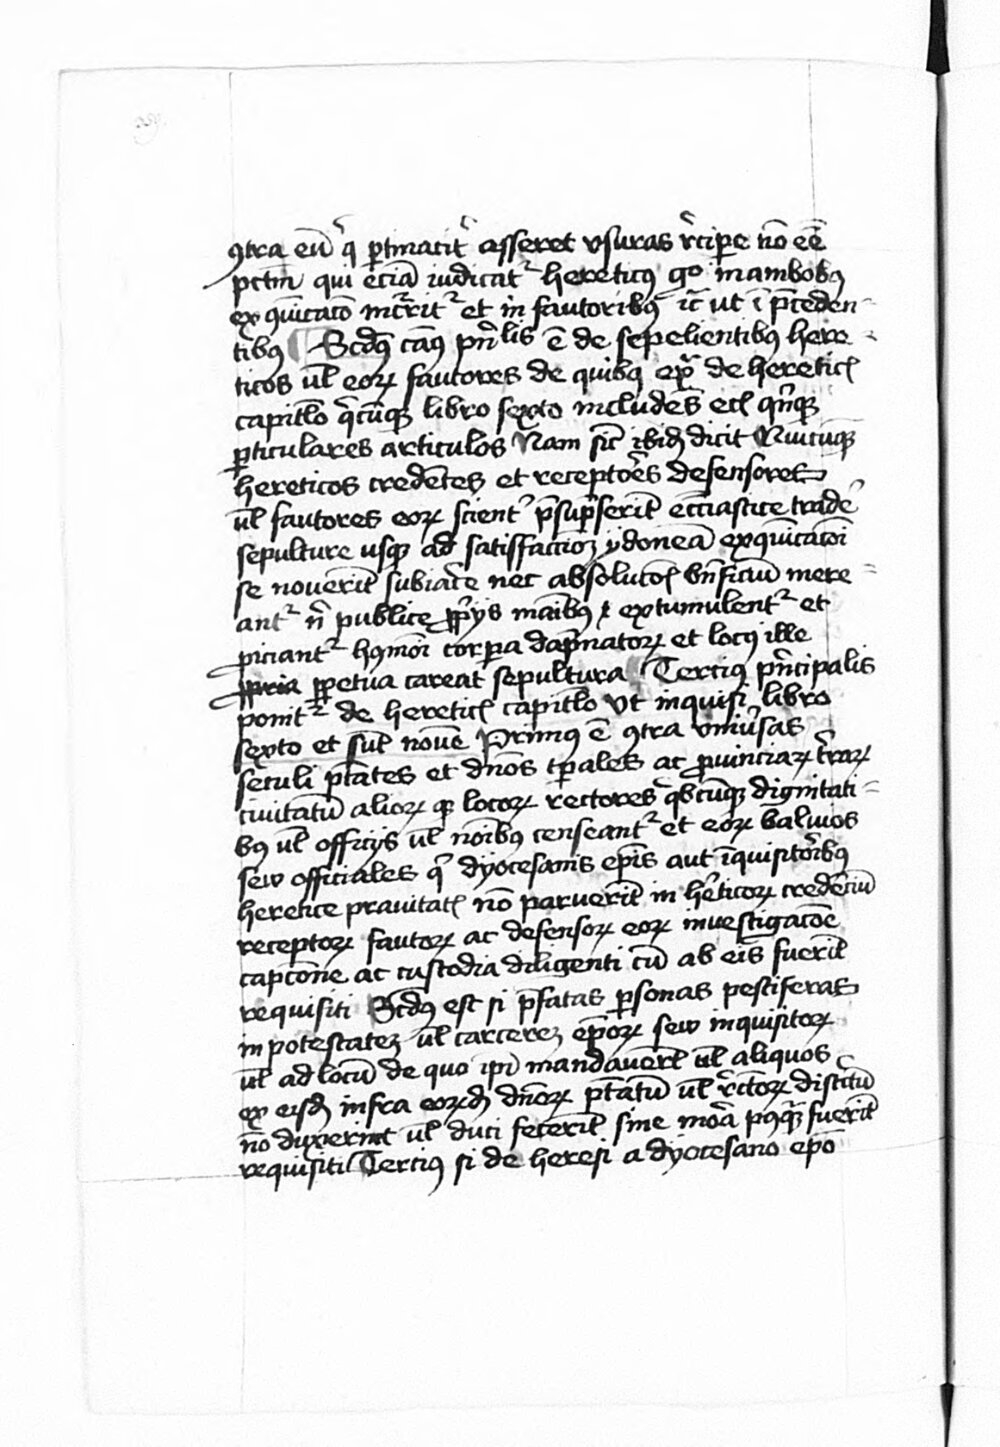 ꝯtra eū q̄ ꝑtinacit̉ asseret vsuras r̉cipe nō eē
pctm̄ qui eciā iudicat᷑ hereticꝰ qͦ in ambobꝰ
exꝯuīcacō incr̄rit᷑ et in fautoribꝰ ic̄ ut ī p̄ceden
tibꝰ Scd̄ꝰ casꝰ pn̄lis ē de sepelientibꝰ here
ticos ul̄ eoꝝ fautores de quibꝰ exp̄ de hereticꝭ
capitl̄o q̄cūqꝫ libro sexto includēs ecꝭ qn̄qꝫ
ꝑticulares articulos Nam sic̄ ibid̄ dicit Quicūqꝫ
hereticos credētes et receptōes defensores
ul̄ fautores eoꝝ scient̉ p̄sūpserīt eccīastice trade᷑
sepulture usqꝫ ad satisfacciōꝫ ydoneā exꝯuīcacōi
se nouerīt subiac̄e nec absolutoꝭ bn̄ficiū mere
ant᷑ n̄ publice ꝓpͥys maībꝰ extumulent᷑ et
ꝓiciant᷑ hꝰmōi corꝑa dāpnatoꝝ et locꝰ ille
ꝓpria ꝑpetua careat sepultura Terciꝰ pn̄cipalis
ponit᷑ de hereticꝭ capitl̄o Vt inquisi libro
sexto et sūt nouē Primꝰ ē ꝯtra vniu̓sas
seculi ptātes et dn̄os tꝑales ac ꝓuinciaꝝ tr̄raꝝ
ciuitatū alioꝝ qꝫ locoꝝ rectores qͥbꝰcūqꝫ dignitati
bꝰ ul̄ officiys ul̄ noībꝰ censeant᷑ et eoꝝ baliuos
seu officiales qͥ dyocesanis ep̄is aut īquisitōribꝰ
heretice prauitatꝭ nō paruerīt in he̓ticoꝝ credēciū
receptoꝝ fautoꝝ ac defensoꝝ eoꝝ inuestigacōe
capcōne ac custodia diligenti cū ab eīs fuerīt
requisiti Scd̄ꝰ est si p̄fatas ꝑsonas pestiferas
in potestateꝫ ul̄ carcereꝫ ep̄oꝝ seu inquisitoꝝ
ul̄ ad locū de quo ip̄i mandauerīt ul̄ aliquos
ex eisd̄ infra eoꝝd̄ dn̄oꝝ ptātū ul̄ r̉ctoꝝ distͨtū
nō duxerint ul̄ duci fecerīt sine moā pꝰqꝫ fuerīt
requisiti Terciꝰ si de heresi a dyocesano ep̄o